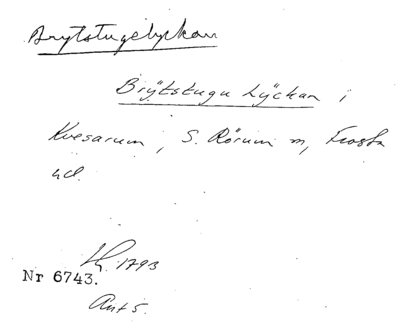 Brytstugelyckan
Brÿtstugu Lÿckan i
Kvesarum, S. Rörum m, Frosta
hd.
Lh. 1793
Nr 6743.
Ant 5.